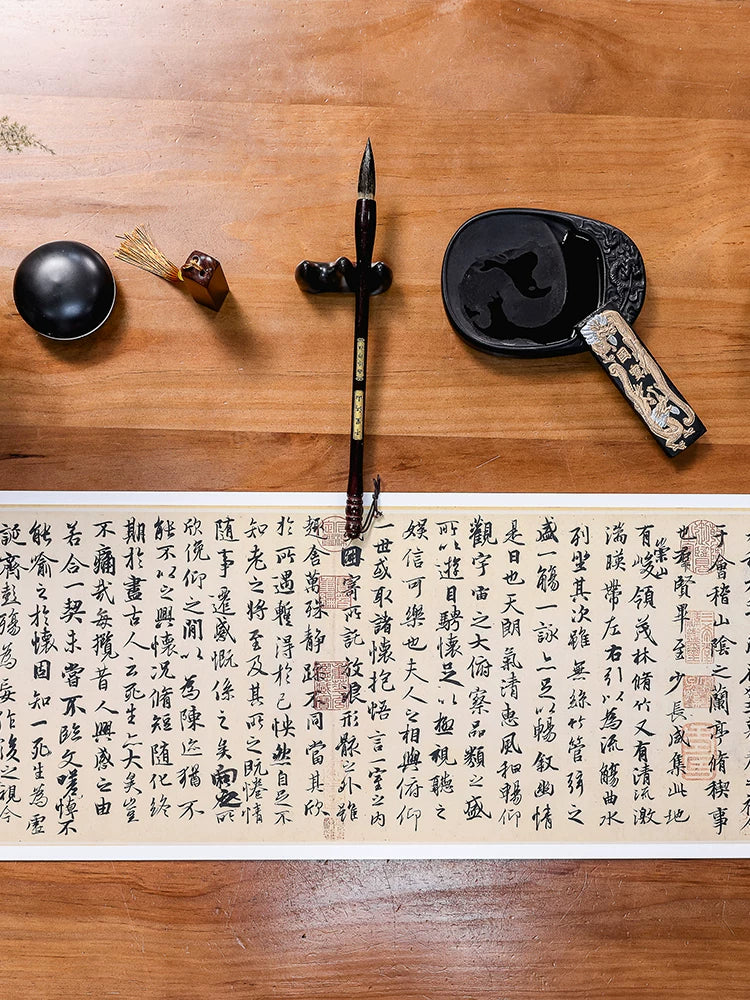 于會稽山陰之蘭亭脩稧事
也羣賢畢至少長咸集此地
有崇山峻領茂林脩竹又有清流激
湍暎帶左右引以為流觴曲水
列坐其次雖無絲竹管弦之
盛一觴一詠亦足以暢敘幽情
是日也天朗氣清惠風和暢仰
觀宇宙之大俯察品類之盛
所以遊目騁懷足以極視聽之
娛信可樂也夫人之相與俯仰
一世或取諸懷抱悟言一室之內
因寄所託放浪形骸之外雖
趣舍萬殊靜躁不同當其欣
於所遇暫得於己怏然自足不
知老之將至及其所之既惓情
隨事遷感慨係之矣向之所
欣俛仰之閒以為陳迹猶不
能不以之興懷況脩短隨化終
期於盡古人云死生亦大矣豈
不痛哉每攬昔人興感之由
若合一契未嘗不臨文嗟悼不
能喻之於懷固知一死生為虛
誕齊彭殤為妄作後之視今